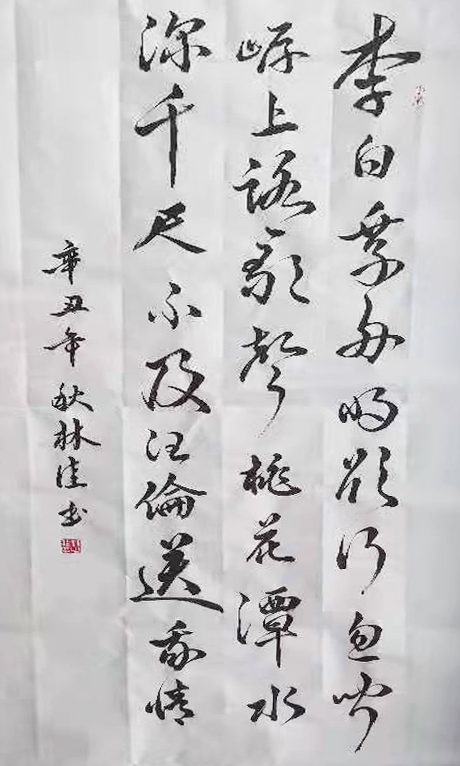 李白乘舟将欲行忽聞
岸上踏歌聲桃花潭水
深千尺不及汪倫送我情
辛丑年秋林佳书